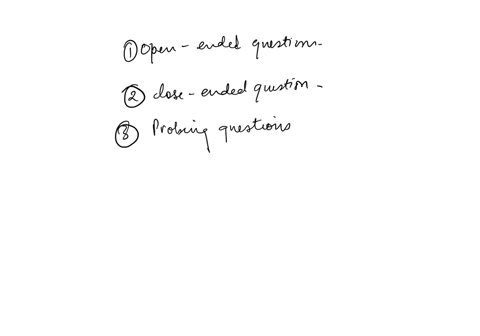 ① Open - ended questions -
② close - ended question -
③ Probing questions